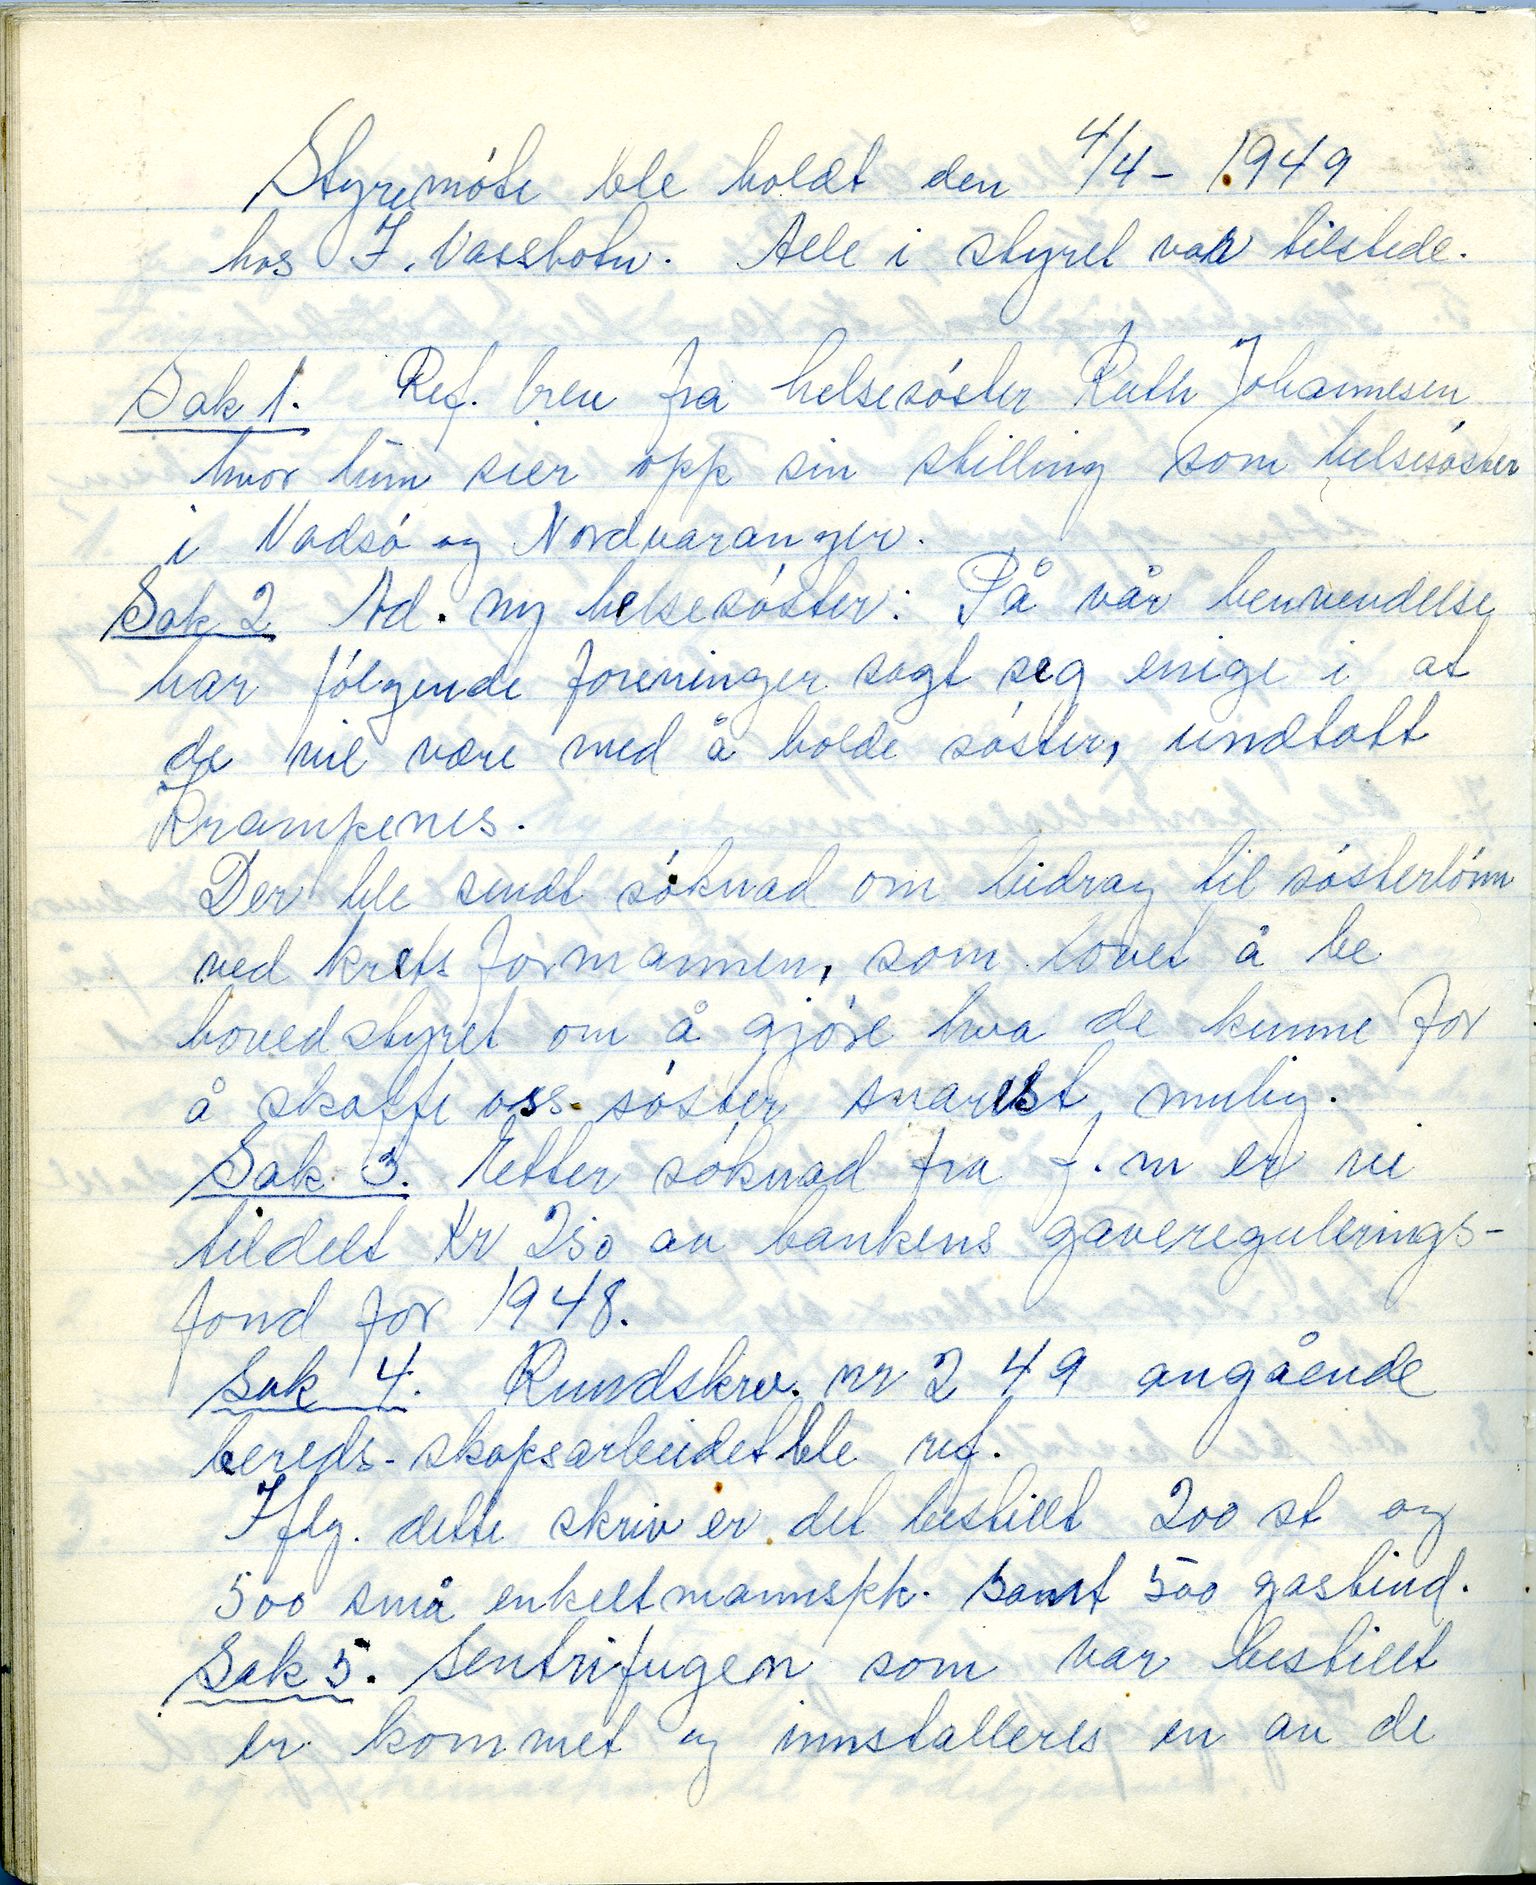 Styremöte ble holdt den 4/4 - 1949
hos I. Vassbotn. Alle i styret var tilstede.
Sak 1. Ref. brev fra helsesöster Ruth Johannesen
hvor hun sier opp sin stilling som helsesöster
i Vadsö og Nordvaranger.
Sak 2 Ad. ny helsesöster: På vår henvendelse
har fölgende foreninger sagt seg enige i at
de vil være med å holde söster, undtatt
Krampenes.
Der ble sendt söknad om bidrag til sösterlönn
ved kretsformannen, som lovet å be
hovedstyret om å gjöre hva de kunne for
å skaffe oss söster snarest mulig.
Sak 3. Etter söknad fra f.m er vi
tildelt Kr 250 av bankens gaveregulerings-
fond for 1948.
Sak 4. Rundskrv. nr 2 49 angående
bereds-skapsarbeidet ble ref.
Iflg. dette skriv er det bestillt 200 st og
500 små enkeltmannspk. samt 500 gasbind.
Sak 5. Sentrifugen som var bestillt
er kommet og innstalleres en av de